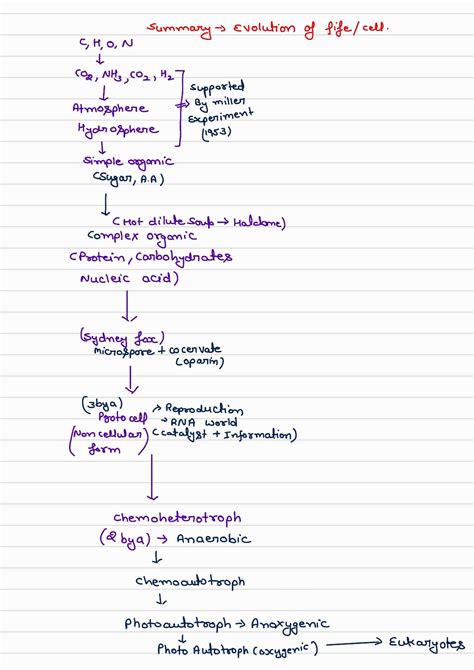 Summary → Evolution of life/cell.
C, H, O, N
↓
CO2, NH3, CO2, H2
Atmosphere
Hydrosphere
⇒ Supported
By miller
Experiment
(1953)
↓
Simple organic
(Sugar, A.A)
↓
(Hot dilute soup → Haldane)
Complex organic
(Protein, Carbohydrates
Nucleic acid)
↓
(Sydney fox)
microspore + cocervate
(oparin)
↓
(3bya)
Proto cell
(Non cellular
form)
→ Reproduction
→ RNA world
(catalyst + Information)
↓
Chemoheterotroph
(2 bya) → Anaerobic
↓
Chemoautotroph
↓
Photoautotroph → Anoxygenic
↳ Photo Autotroph (oxygenic) → Eukaryotes